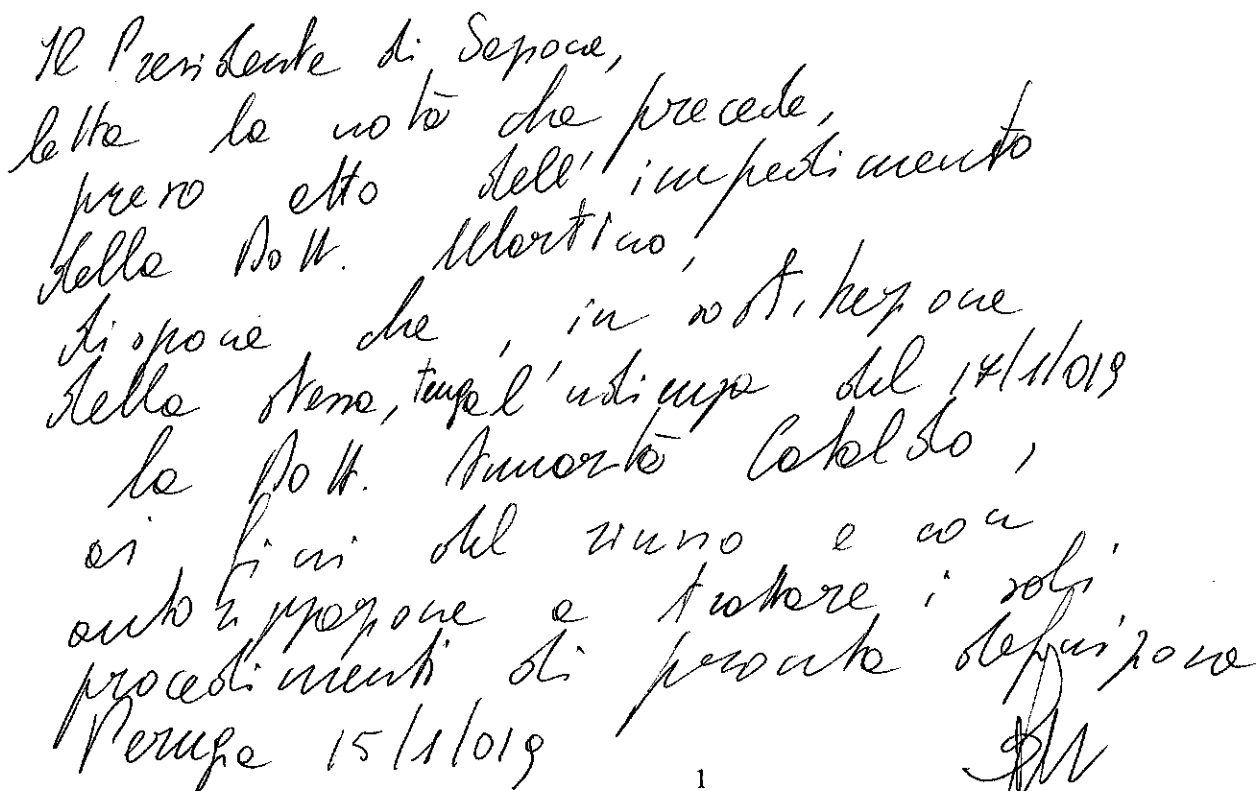 Il Presidente di Sezione,
letta la nota che precede,
preso atto dell'impedimento
della Dott. Martino,
dispone che, in sostituzione
della stessa, tenga l'udienza del 17/1/019
la Dott. Cataldo,
ai fini del rinvio e con
autorizzazione a trattare i soli
procedimenti di pronta definizione
Perugia 15/1/019
1